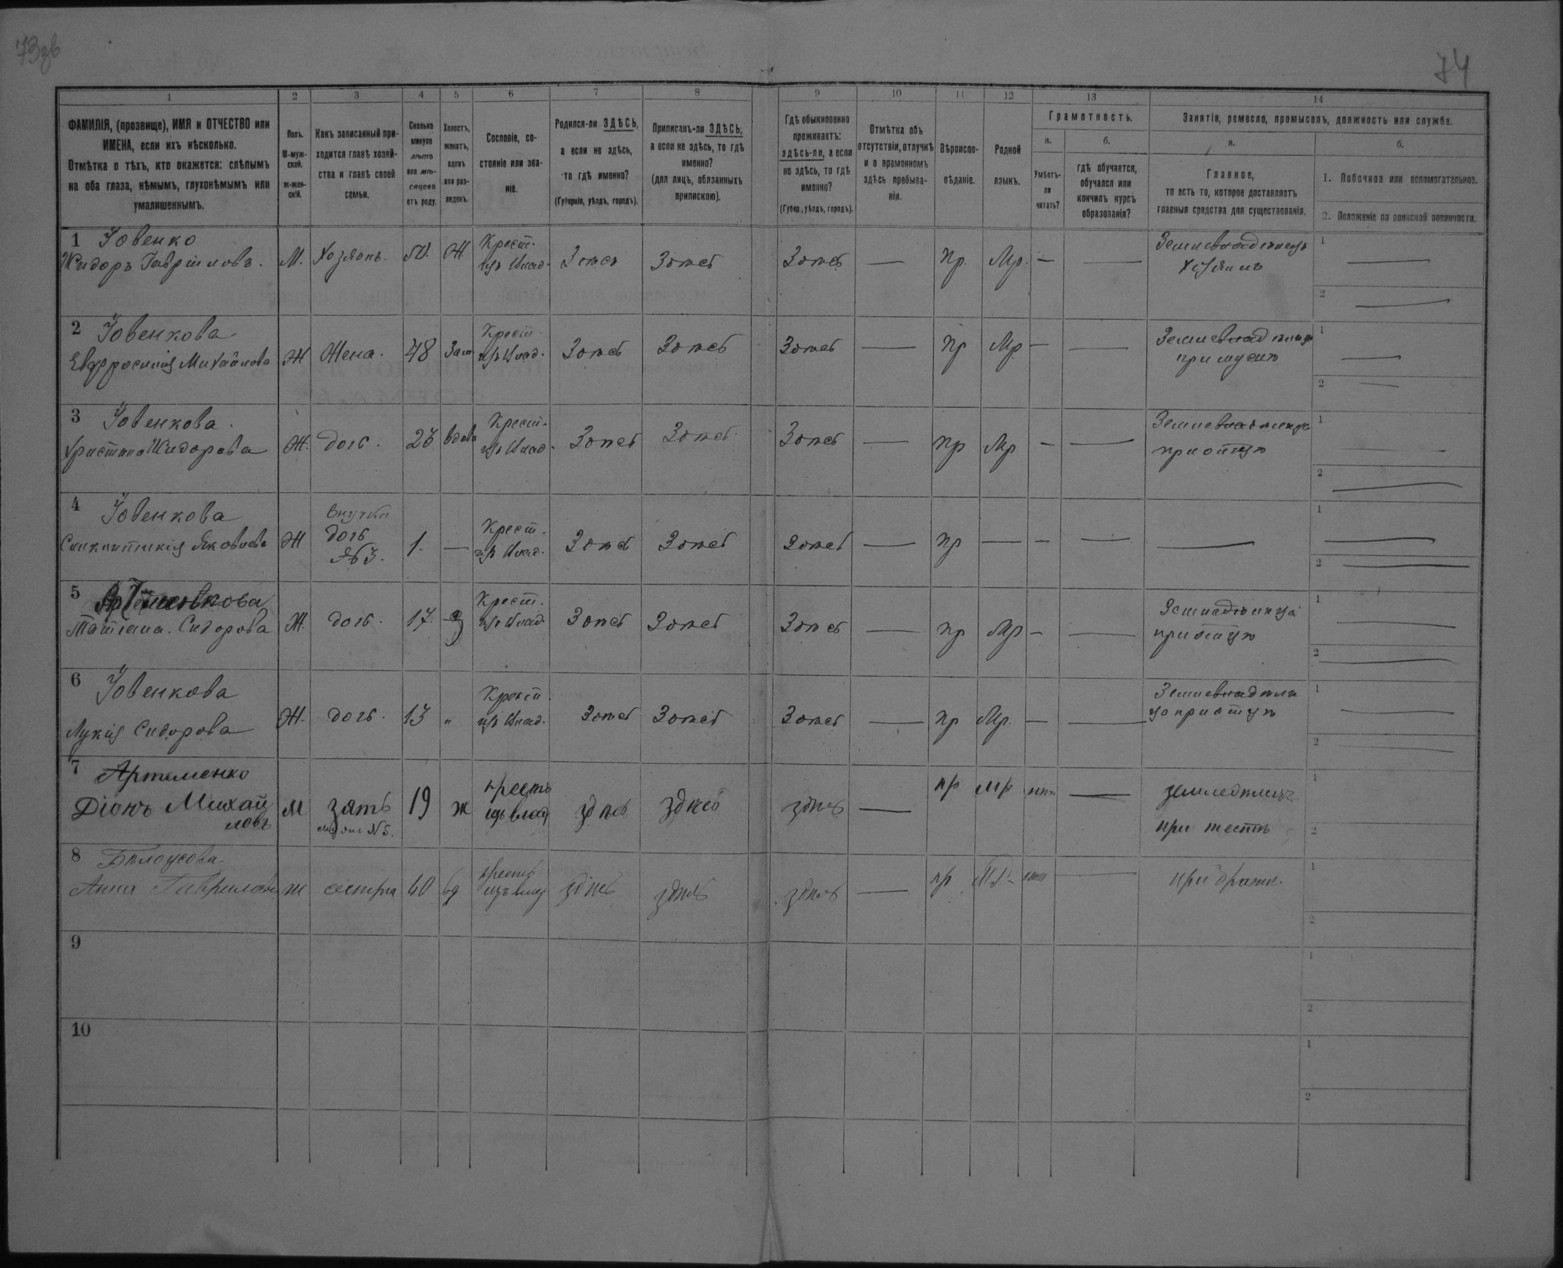 73об
74
1 2 3 4 5 6 7 8 9 10 11 12 13 14
ФАМИЛІЯ, (прозвище), ИМЯ и ОТЧЕСТВО или
ИМЕНА, если ихъ нѣсколько.
Отмѣтка о тѣхъ, кто окажется: слѣпымъ
на оба глаза, нѣмымъ, глухонѣмымъ или
умалишеннымъ.
Полъ.
М-муж-
ской.
ж-жен-
скій.
Какъ записанный при-
ходится главѣ хозяй-
ства и главѣ своей
семьи.
Сколько
минуло
лѣтъ
или мѣ-
сяцевъ
отъ роду.
Холостъ,
женатъ,
вдовъ
или раз-
веденъ.
Сословіе, со-
стояніе или зва-
ніе.
Родился-ли ЗДѢСЬ,
а если не здѣсь,
то гдѣ именно?
(Губернія, уѣздъ, городъ).
Приписанъ-ли ЗДѢСЬ,
а если не здѣсь, то гдѣ
именно?
(для лицъ, обязанныхъ
припискою).
Гдѣ обыкновенно
проживаетъ:
здѣсь-ли, а если
не здѣсь, то гдѣ
именно?
(Губер., уѣздъ, городъ).
Отмѣтка объ
отсутствіи, отлучкѣ
и о временномъ
здѣсь пребыва-
ніи.
Вѣроиспо-
вѣданіе.
Родной
языкъ.
Грамотность.
а.
Умѣетъ-
ли
читать?
б.
гдѣ обучается,
обучался или
кончилъ курсъ
образованія?
Занятія, ремесло, промыселъ, должность или служба.
а.
Главное,
то есть то, которое доставляетъ
главныя средства для существованія.
б.
1. Побочное или вспомогательное.
2. Положеніе по воинской повинности.
1 Іовенко
Жидоръ Гавриловъ. М. Хозяинъ. 50. Ж Крест. изъ Влад. Здѣсь Здѣсь Здѣсь — пр. Мр. — — Землевладѣлецъ хозяинъ 1 — 2 —
2 Іовенкова
Евфросинія Михайлова Ж Жена. 48 Зам Крест. изъ Влад. Здѣсь Здѣсь Здѣсь — пр Мр — — Землевладѣлица при мужѣ 1 — 2 —
3 Іовенкова.
Христина Жидорова Ж. дочь. 23 вдова Крест. изъ Влад. Здѣсь Здѣсь Здѣсь — пр Мр — — при отцѣ 1 — 2 —
4 Іовенкова
Яковлева Ж внучка дочь №3. 1. — Крест. изъ Влад. Здѣсь Здѣсь Здѣсь — пр — — — — 1 — 2 —
5
Татіана Сидорова Ж. дочь. 17. Крест. изъ Влад. Здѣсь Здѣсь Здѣсь — пр Мр — — при отцѣ 1 — 2 —
6 Іовенкова
Лукія Сидорова Ж. дочь. 13 „ Крест. изъ Влад. Здѣсь Здѣсь Здѣсь — пр Мр. — — при отцѣ 1 — 2 —
7 Артеменко
Діонъ Михай
ловъ м зять 19 ж крест изъ влад здѣсь здѣсь здѣсь — пр мр — земледѣлецъ при тестѣ 1 2
8 Бѣлоусова
Анна Гаврилова ж сестра 40 вд крест изъ влад здѣсь здѣсь здѣсь — пр — при братѣ. 1 2
9 1 2
10 1 2